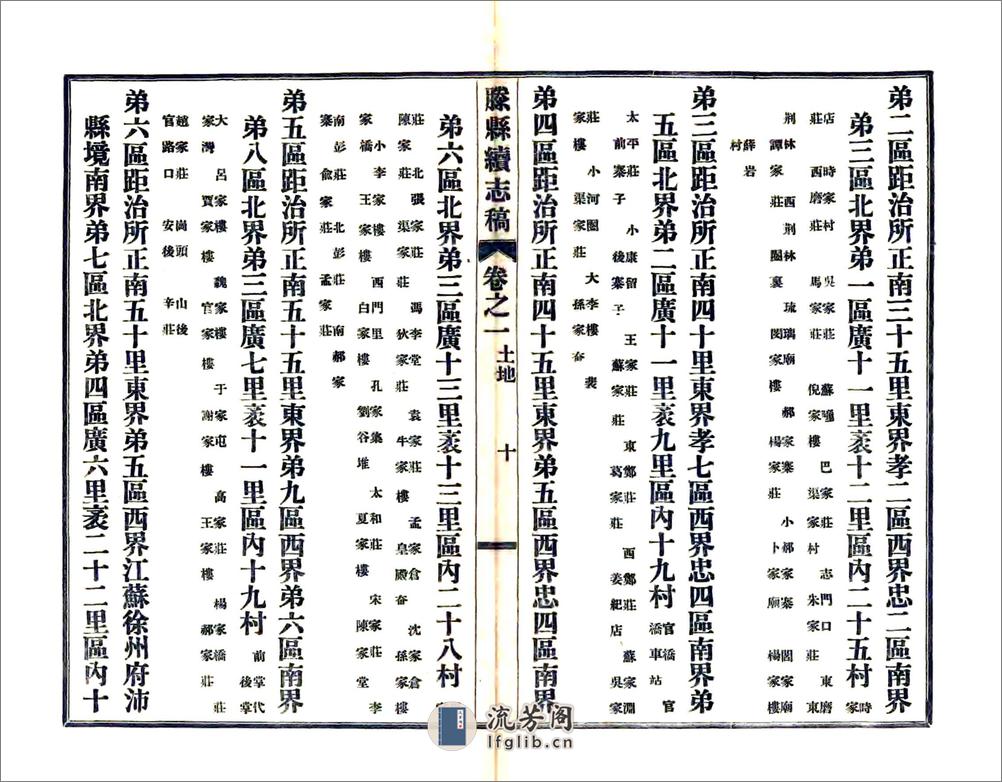 弟二區距治所正南三十五里東界孝二區西界忠二區南界
弟三區北界弟一區廣十一里袤十二里區內二十五村 時家
店 時家村 吳家莊 蘇嘡 巴家莊 志門口 東磨
莊 西磨莊 馬家莊 倪家樓 渠家村 朱家莊 東
荆林 西荆林 琉璃廟 郝家寨 小郝家寨 閻家廟
譚家莊 圈裏 閔家樓 楊家莊 卜家廟 楊家樓
薛岩
村
弟三區距治所正南四十里東界孝七區西界忠四區南界弟
五區北界弟二區廣十一里袤九里區內十九村 官橋車站 官
太平莊 小康留 王家莊 東鄭莊 西鄭莊 蘇家澗
前寨子 小後寨子 蘇家莊 葛家莊 姜紀店 吳家
莊 小河圈 大李樓 裴
家樓 渠家莊 孫家奋
弟四區距治所正南四十五里東界弟五區西界忠四區南界
滕縣續志稿 卷之一 土地 十
弟六區北界弟三區廣十三里袤十三里區內二十八村
莊 北張家莊 馮李堂 袁家莊 孟家倉 沈家倉
陳家莊 渠家莊 狄家莊 牛家樓 皇殿奋 孫家樓
小李家樓 西門里 孔家集 太和莊 宋家莊 李
家橋 王家樓 白家樓 劉谷堆 夏家樓 陳家堂
南彭莊 北彭莊 南郝家
寨 兪家莊 孟家莊
弟五區距治所正南五十五里東界弟九區西界弟六區南界
弟八區北界弟三區廣七里袤十一里區內十九村 前掌代 後掌
大 呂家樓 魏家樓 于家屯 高家莊 楊家橋 莊
家灣 賈家樓 官家樓 謝家樓 王家樓 郝家莊
趙家莊 崗頭 山後
官路口 安後 辛莊
弟六區距治所正南五十里東界弟五區西界江蘇徐州府沛
縣境南界弟七區北界弟四區廣六里袤二十二里區內十
流芳阁
lfglib.cn